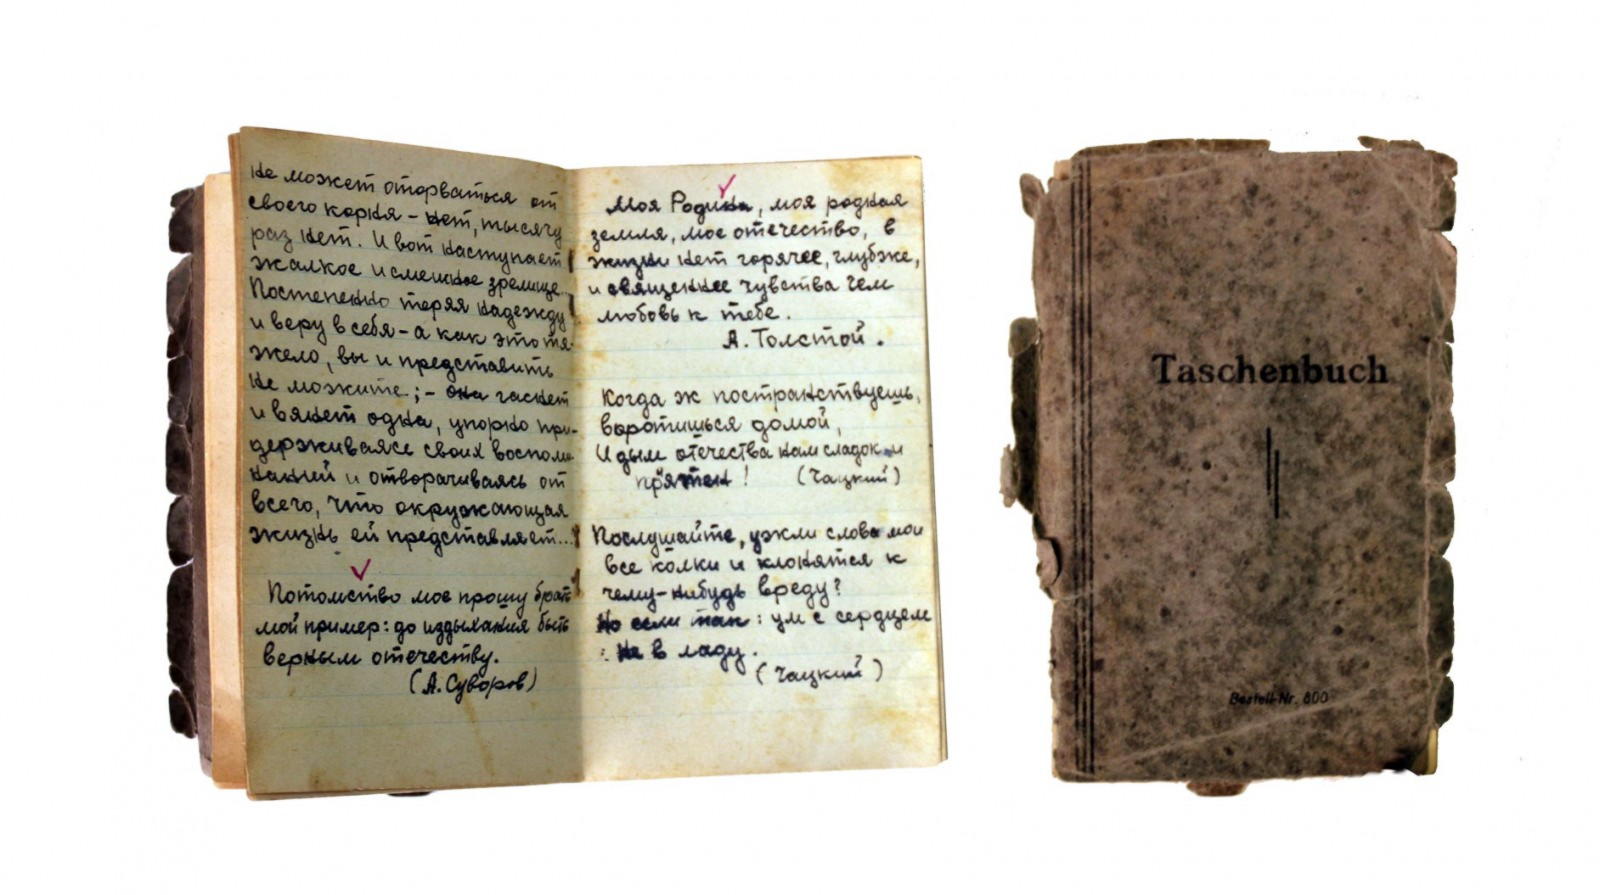 не может оторваться от
своего корня – нет, тысячу
раз нет. И вот наступает
жалкое и смешное зрелище...
Постепенно теряя надежду
и веру в себя – а как это тя-
жело, вы и представить
не можите; – она гаснет
и вянет одна, упорно при-
держиваясь своих воспоми-
наний и отворачиваясь от
всего, что окружающая
жизнь ей представляет...
Потомство мое прошу брать
мой пример: до издыхания быть
верным отечеству.
(А. Суворов)
Моя Родина, моя родная
земля, мое отечество, в
жизни нет горячее, глубже,
и священнее чувства чем
любовь к тебе.
А. Толстой.
Когда ж постранствуешь,
воротишься домой,
И дым отечества нам сладок и
приятен! (Чацкий)
Послушайте, ужли слова мои
все колки и клонятся к
чему-нибудь вреду?
Но если так: ум с сердцем
не в ладу.
(Чацкий)
Taschenbuch
Bestell-Nr. 800